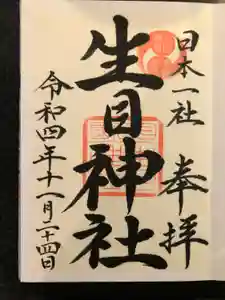 日本一社 奉拝
生目神社
令和四年十一月二十四日